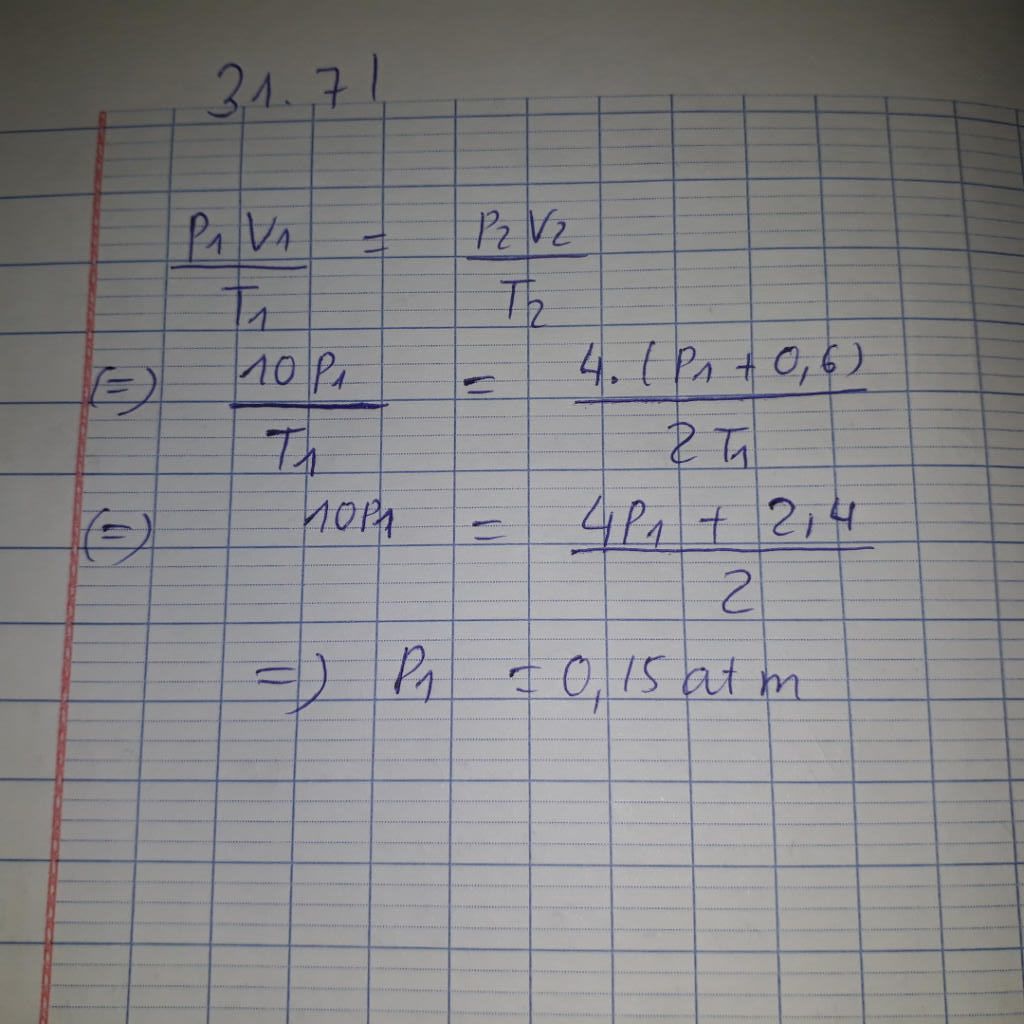 31.71
P1 V1 / T1 = P2 V2 / T2
(=) 10 P1 / T1 = 4.(P1 + 0,6) / 2 T1
(=) 10P1 = 4P1 + 2,4 / 2
=) P1 = 0,15 atm